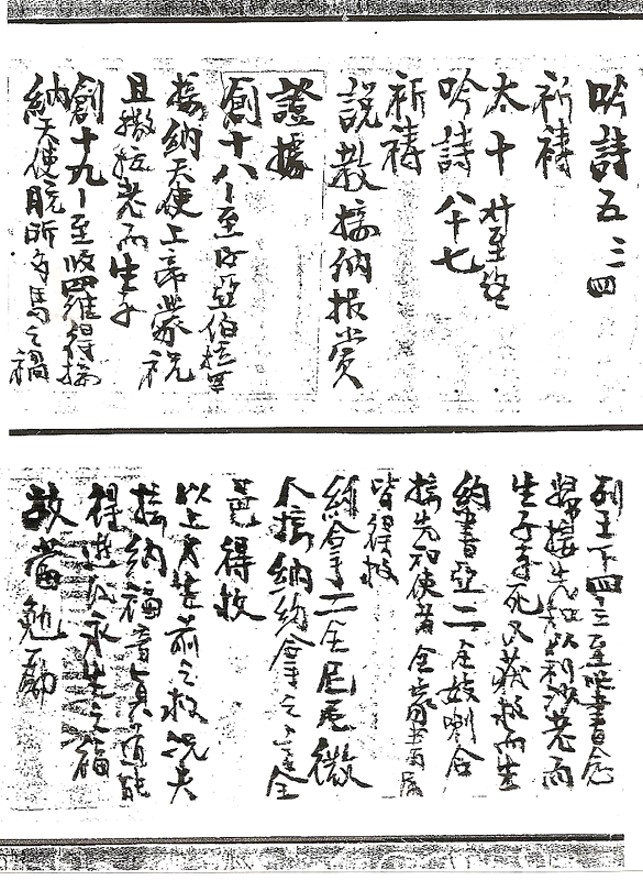 吟詩五 三四
祈禱
太十 卅至終
吟詩 八十七
祈禱
說教接納報賞
證據
創十八 1至 亞伯拉罕
接納天使上帝蒙祝
且撒拉老而生子
創十九 1至 羅得接
納天使脫所多馬之禍
列王下四 至 書念
婦接先知以利沙老而
生子子死又蒙救而生
約書亞二全妓喇合
接先知使者全家
皆得救
約拿二全尼尼微
人接納約拿之言全
邑得救
以上 生前之救況夫
接納福音真道能
得進入永生之福
故當勉勵